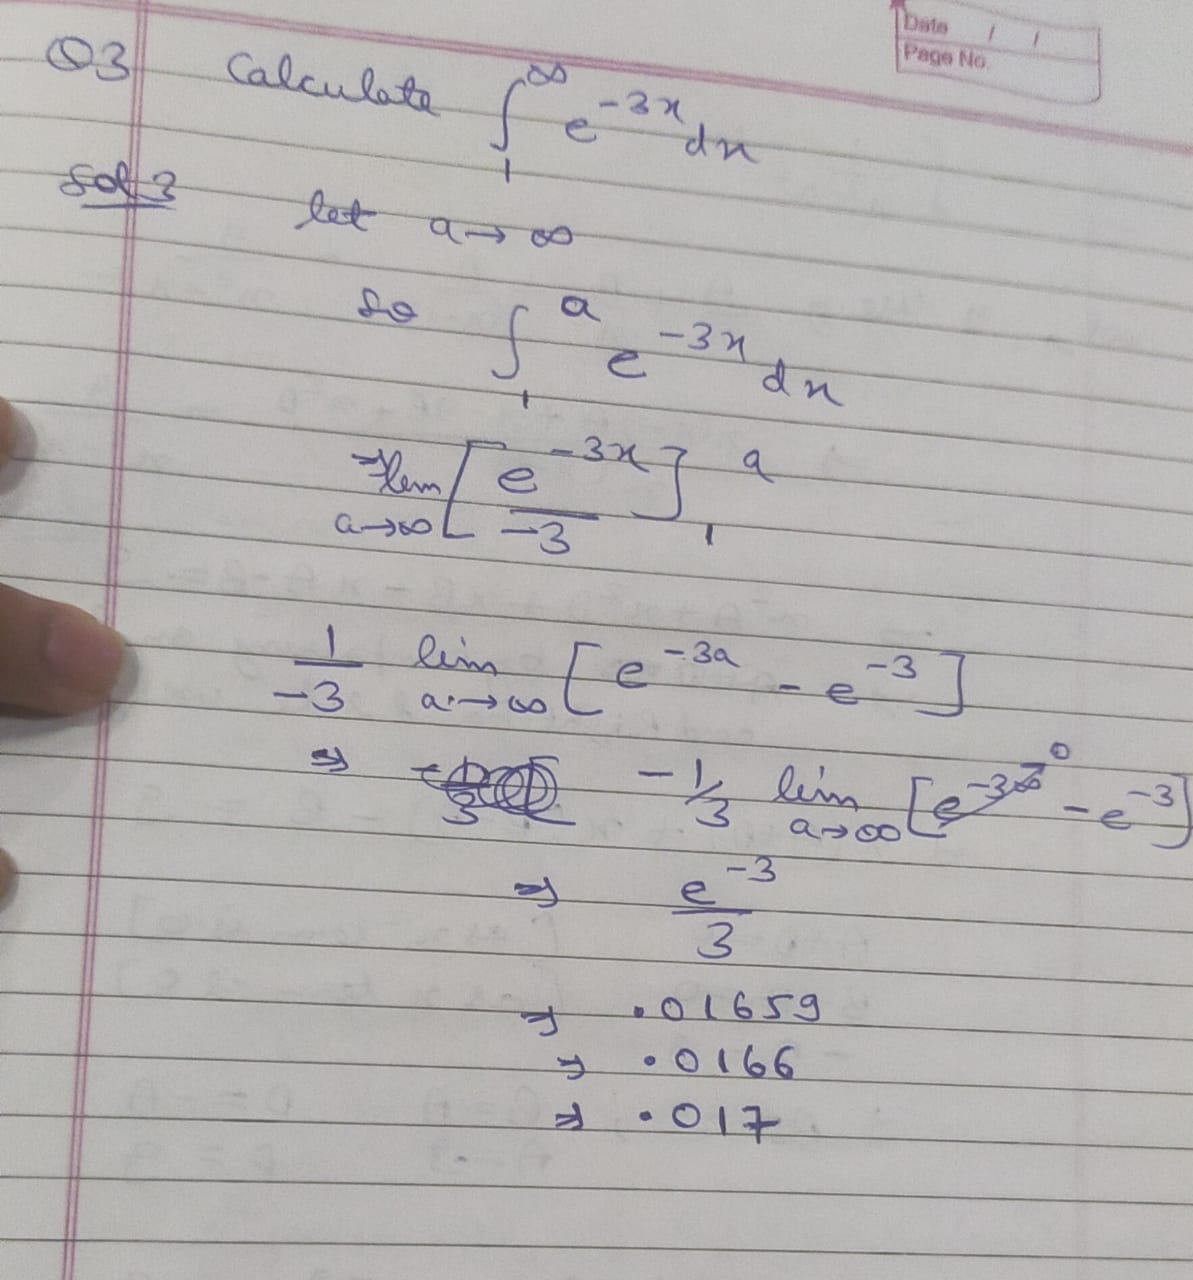 Date / /
Page No.
Q3 Calculate ∫₁^∞ e^{-3x} dx
Sol 3 let a → ∞
So ∫₁^a e^{-3x} dx
⇒ lim_{a→∞} [e^{-3x}/-3]₁^a
1/-3 lim_{a→∞} [e^{-3a} - e^{-3}]
⇒ -1/3 lim_{a→∞} [e^{-3∞}→0 - e^{-3}]
⇒ e^{-3}/3
⇒ .01659
⇒ .0166
⇒ .017